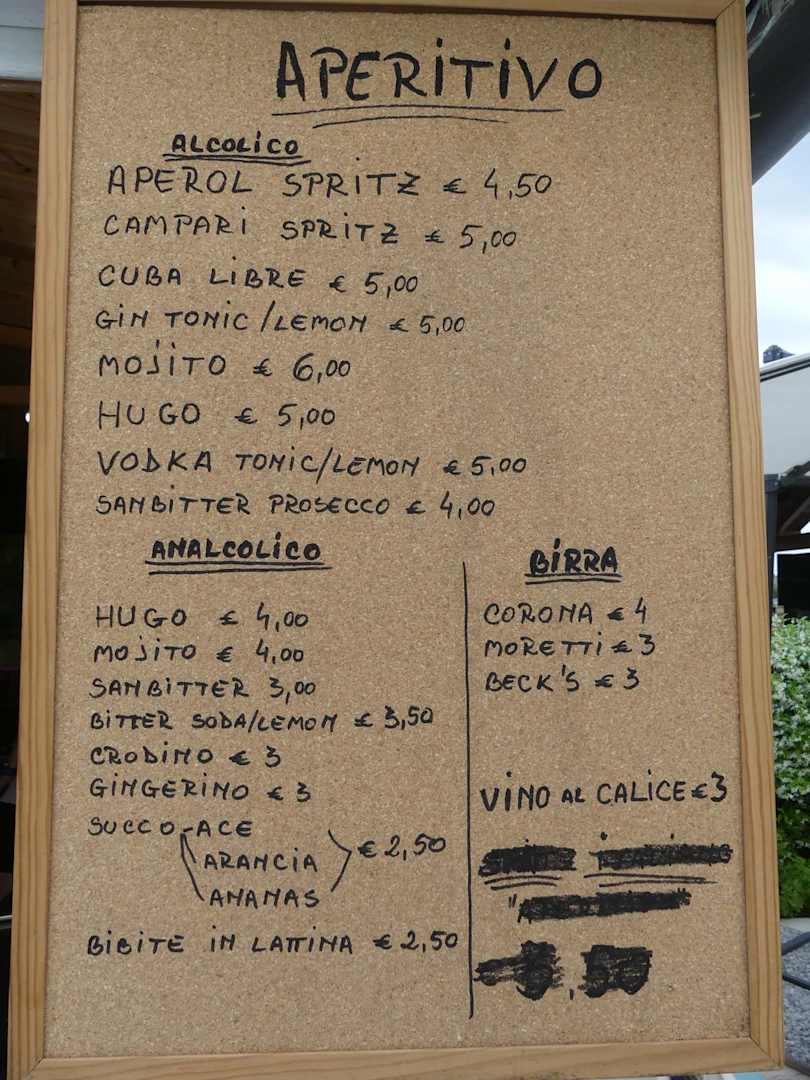 APERITIVO
ALCOLICO
APEROL SPRITZ € 4,50
CAMPARI SPRITZ € 5,00
CUBA LIBRE € 5,00
GIN TONIC/LEMON € 5,00
MOJITO € 6,00
HUGO € 5,00
VODKA TONIC/LEMON € 5,00
SANBITTER PROSECCO € 4,00
ANALCOLICO
HUGO € 4,00
MOJITO € 4,00
SANBITTER 3,00
BITTER SODA/LEMON € 3,50
CRODINO € 3
GINGERINO € 3
SUCCO-ACE
ARANCIA
ANANAS
€ 2,50
BIBITE IN LATTINA € 2,50
BIRRA
CORONA € 4
MORETTI € 3
BECK'S € 3
VINO AL CALICE € 3